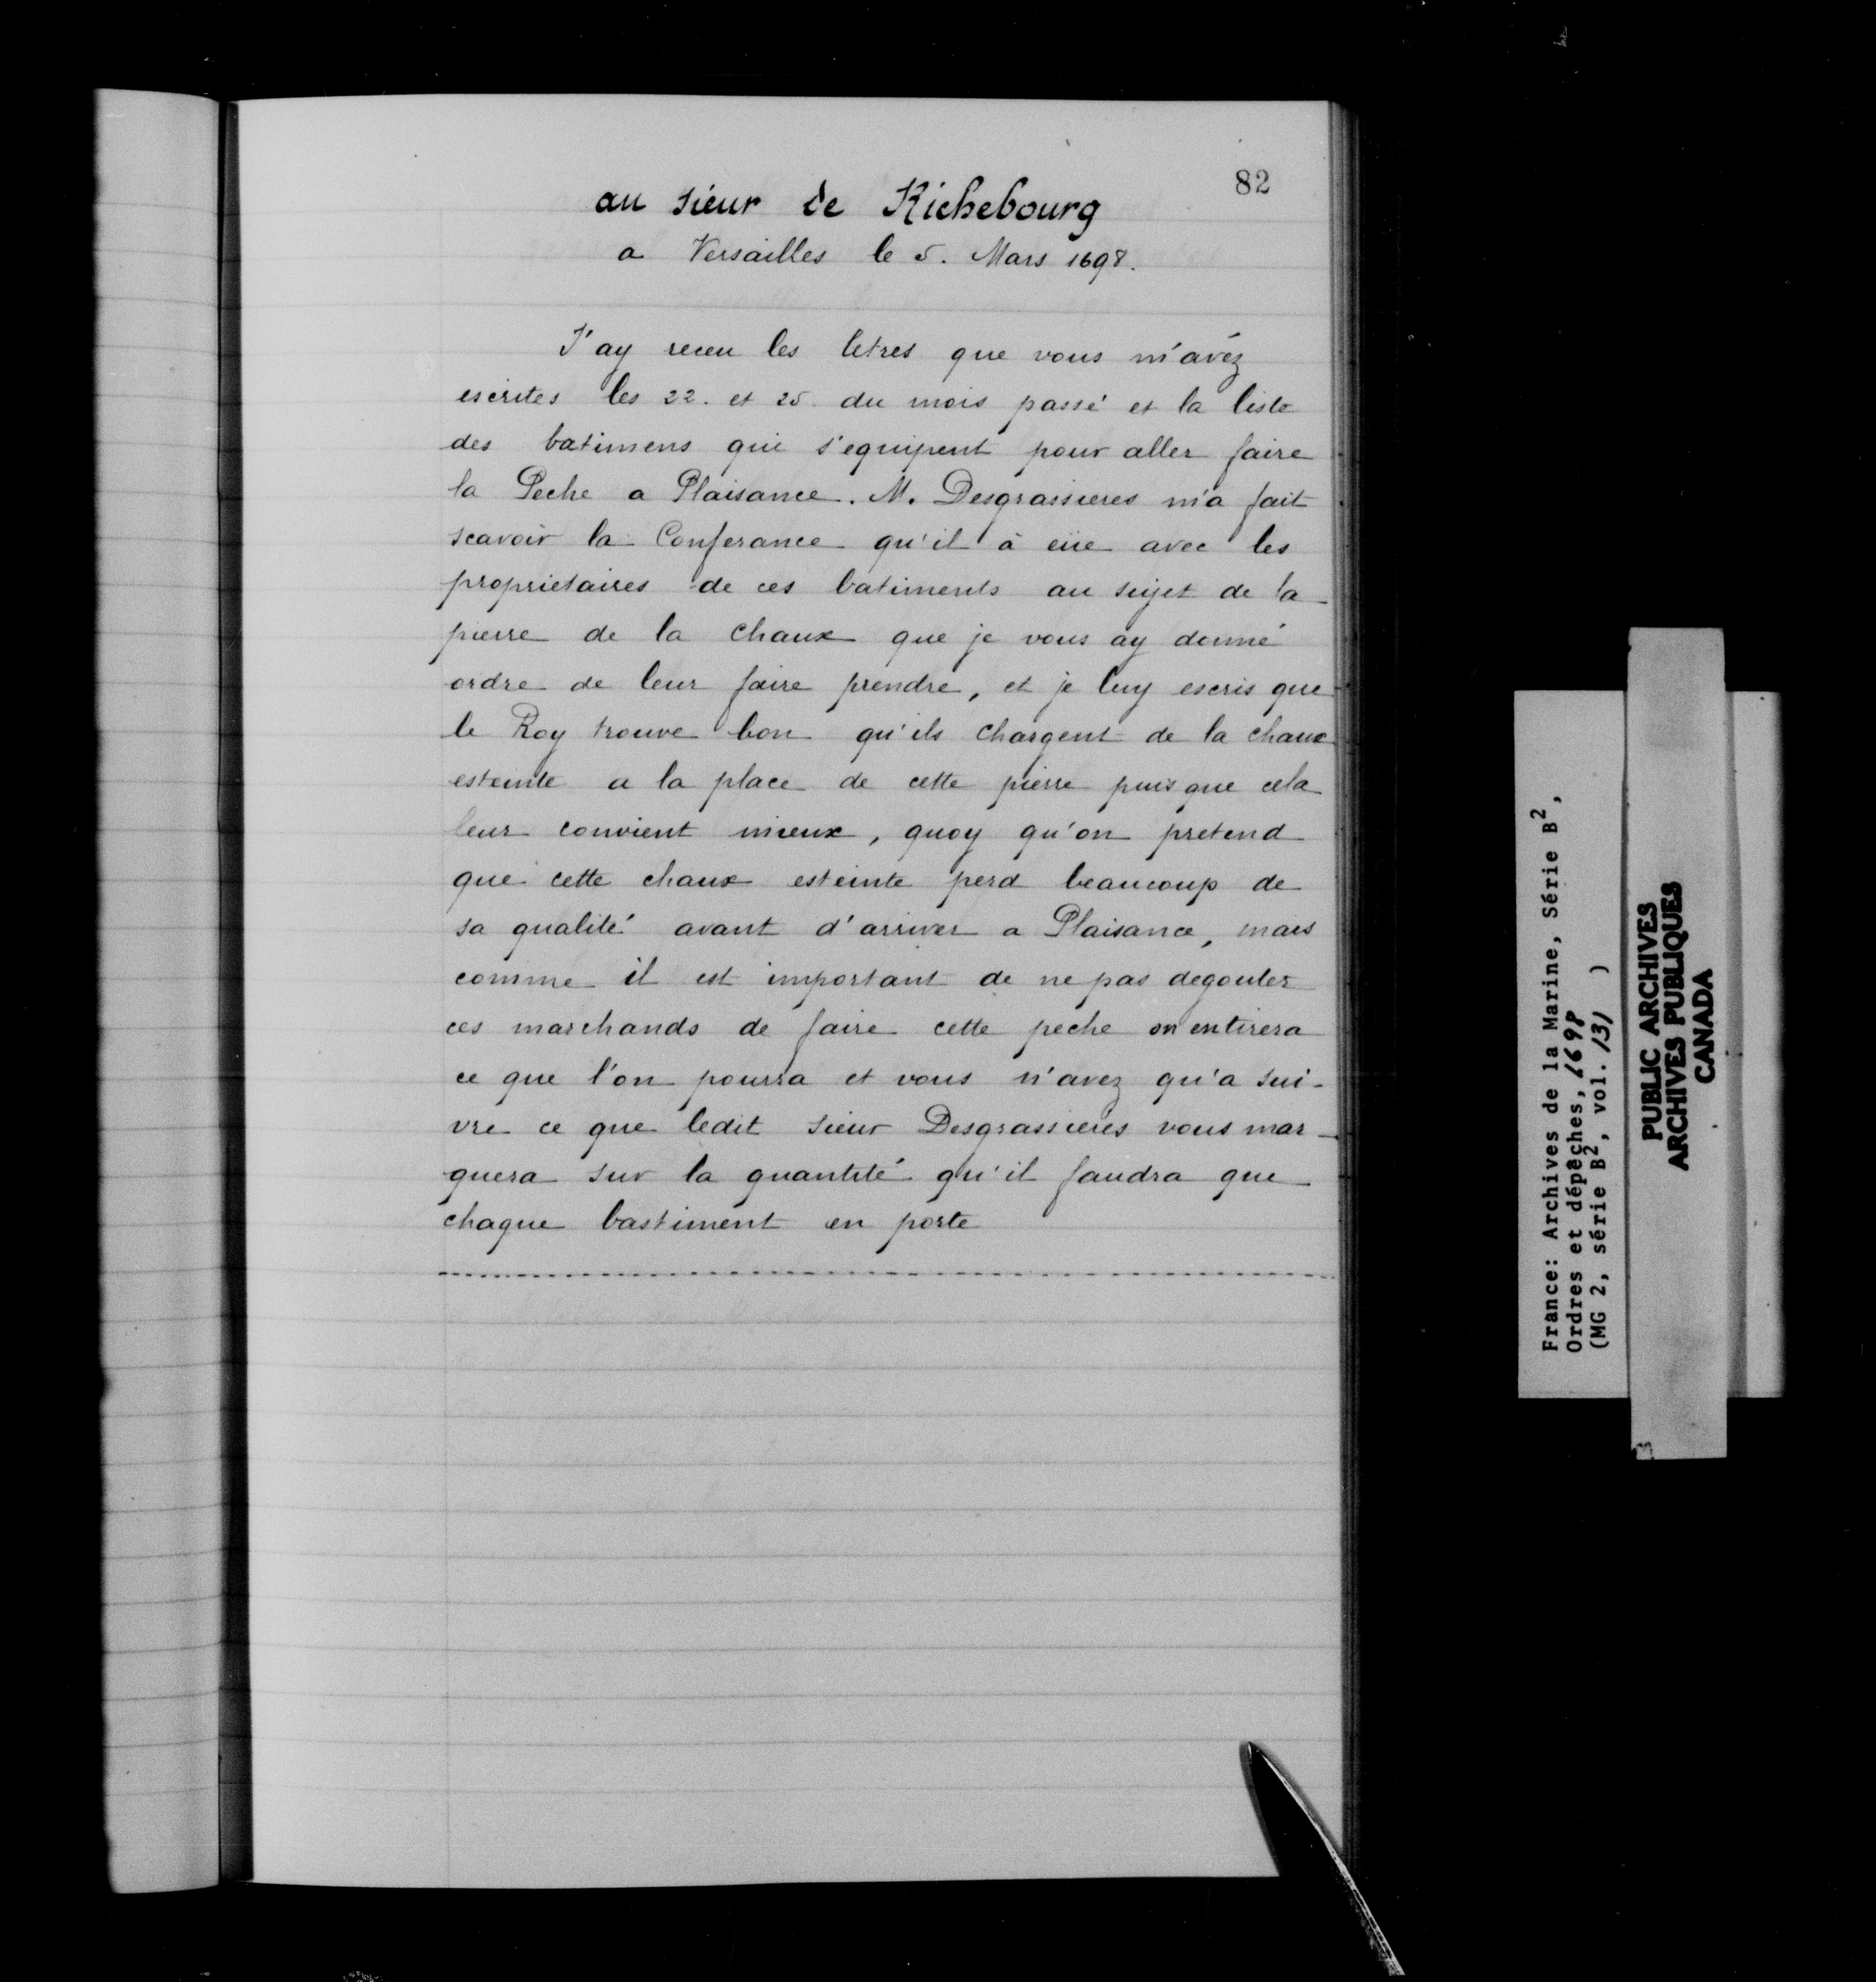 82
au sieur de Richebourg
a Versailles le 5. Mars 1698.
J'ay receu les letres que vous m'avéz
escrites les 22. et 25. du mois passé et la liste
des batimens qui s'equipent pour aller faire
la Peche a Plaisance. M. Desgrassieres m'a fait
scavoir la Conferance qu'il à eüe avec les
proprietaires de ces batiments au sujet de la
pierre de la chaux que je vous ay donné
ordre de leur faire prendre, et je luy escris que
le Roy trouve bon qu'ils chargent de la chaux
esteinte a la place de cette pierre puis que cela
leur convient mieux, quoy qu'on pretend
que cette chaux esteinte perd beaucoup de
sa qualité avant d'arriver a Plaisance, mais
comme il est important de ne pas degouter
ces marchands de faire cette peche on entirera
ce que l'on pourra et vous n'avez qu'a sui-
vre ce que ledit sieur Desgrassieres vous mar-
quera sur la quantité qu'il faudra que
chaque bastiment en porte
France: Archives de la Marine, Série B2,
Ordres et dépêches, 1698
(MG 2, série B2, vol. 131 )
PUBLIC ARCHIVES
ARCHIVES PUBLIQUES
CANADA